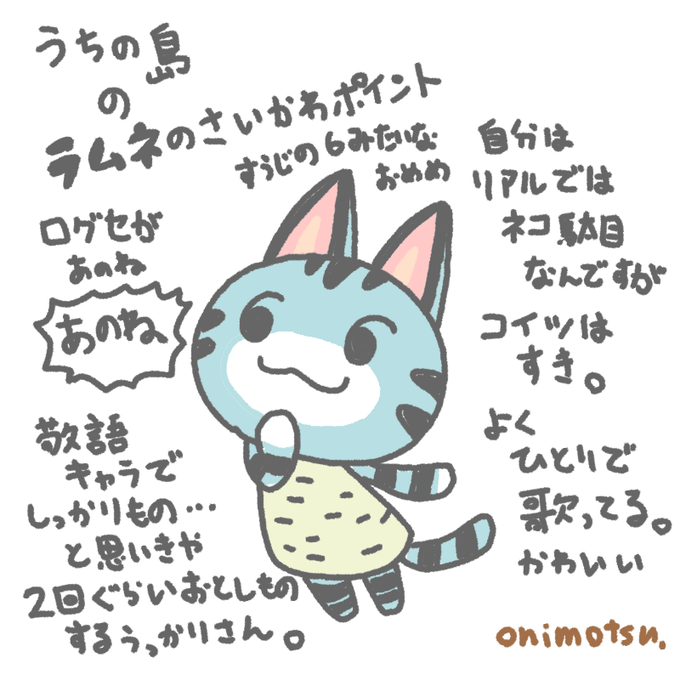 うちの島
の
ラムネのさいかわポイント
すうじの6みたいな
おめめ
自分は
リアルでは
ネコ駄目
なんですが
コイツは
すき。
ログセが
あのね
あのね、
敬語
キャラで
しっかりもの…
と思いきや
2回ぐらいおとしもの
するうっかりさん。
よく
ひとりで
歌ってる。
かわいい
onimotsu.